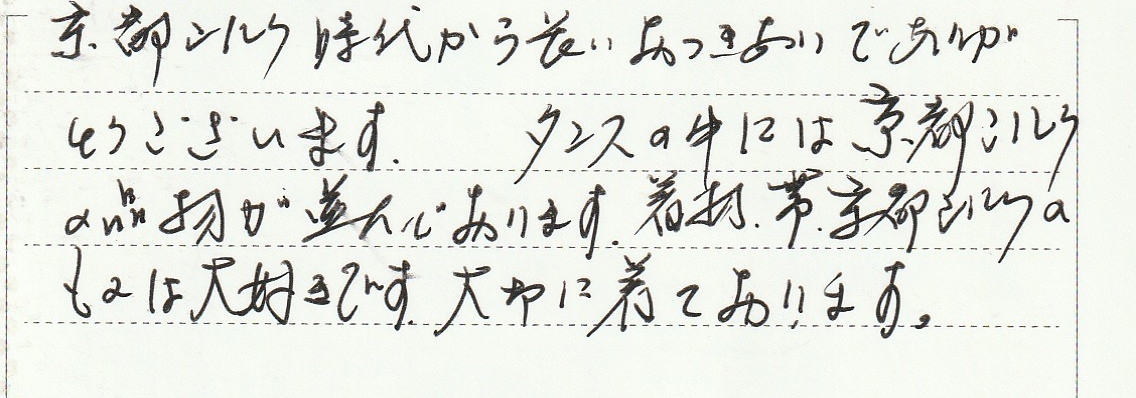 京都シルク時代から長いおつきあいでありが
とうございます. タンスの中には京都シルク
の品物が並んでおります. 着物. 帯. 京都シルクの
ものは大好きです. 大切に着ております。